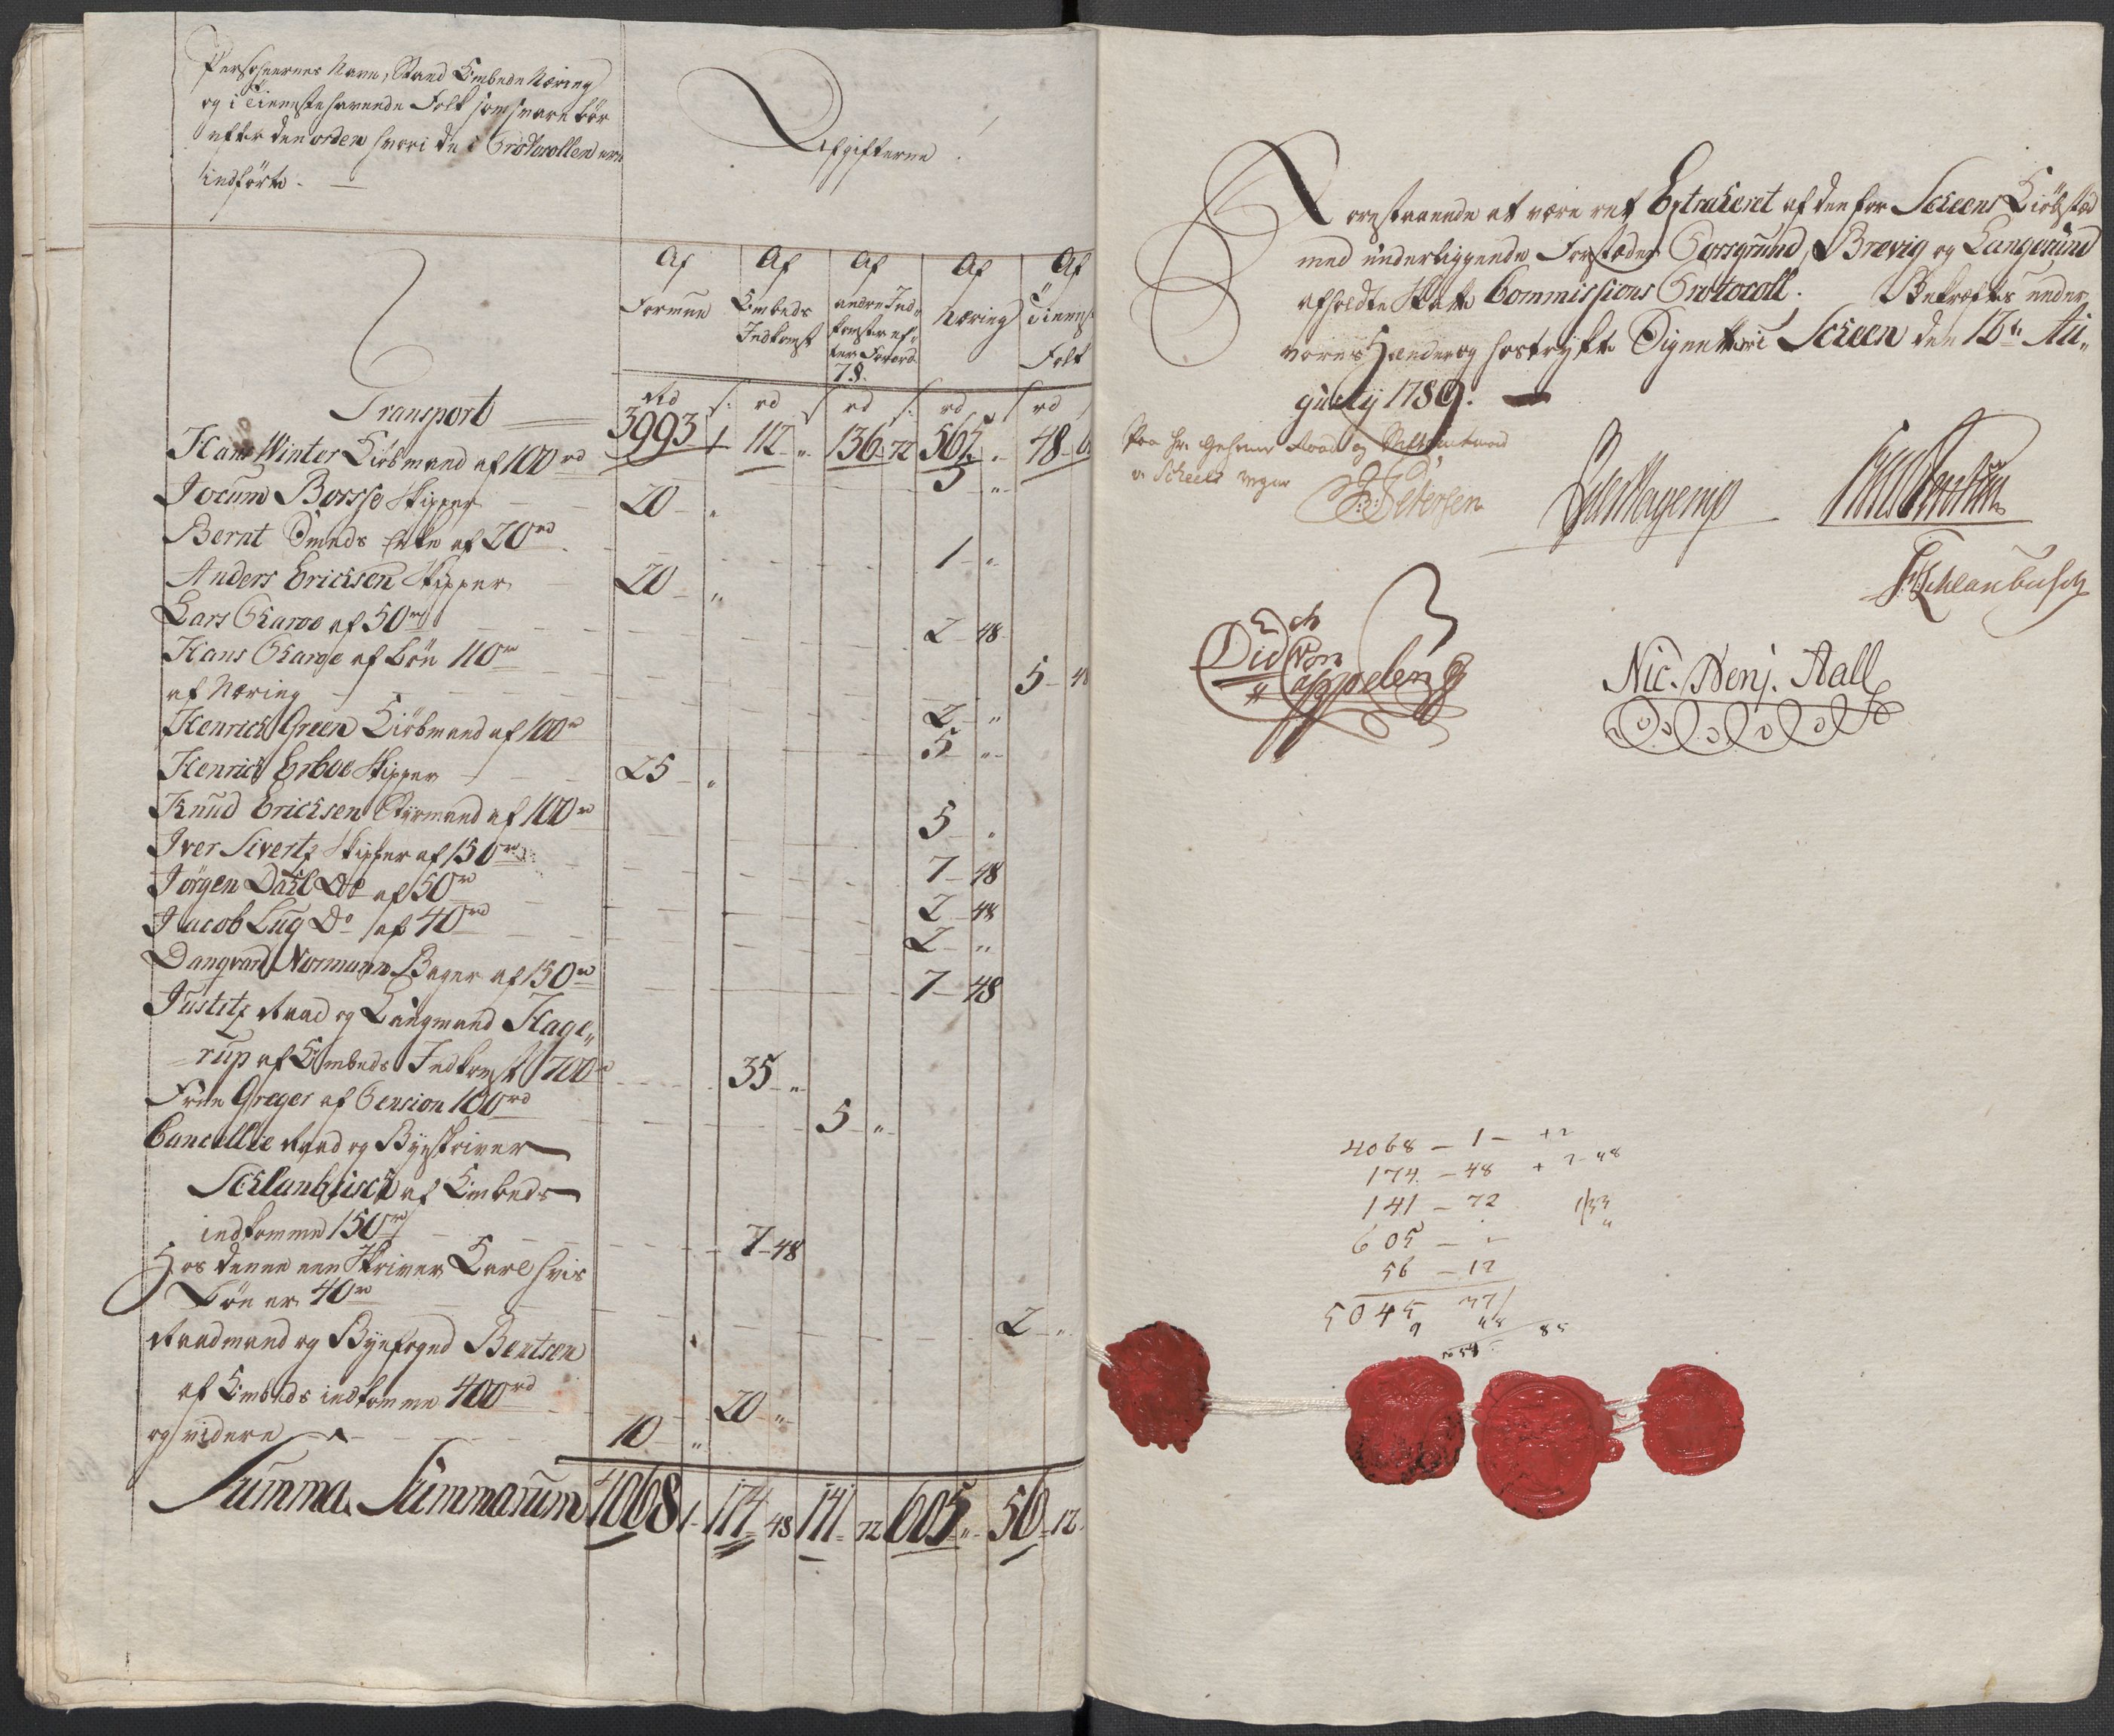 Persohnernes Navn, Stand Embede Næring
og i Tienneste havende Folk som svare bør
efter den orden hvori de i Protocollen ere
indførte.
Afgifterne
Af Af Af Af Af
Formue Embeds Indkomst andre Indkomster efter Forord. 78. Næring Tienneste Folk
rd s. rd s rd s. rd s rd
Transport 3993 1 112 " 136 72 565 " 48
Hans Winter Kiøbmand af 100 rd 5 "
Jocum Borsse Skipper 20 "
Bernt Smeds Enke af 20 rd 1 "
Anders Erichsen Skipper 20 "
Lars Gharbo af 50 rd 2 48
Hans af Løn 110 rd 5 48
af Næring 2 "
Henrich Green Kiøbmand af 100 rd 5 "
Henrich Erboe Skipper 25 "
Knud Erichsen Styrmand af 100 rd 5 "
Iver Sivertz Skipper af 150 rd 7 48
Jørgen Dahl Do af 50 rd 2 48
Jacob Lug Do af 40 rd 2 "
Danqvard Normann Bager af 150 rd 7 48
Justitz Raad og Laugmand Hage„
rup af Embeds Indkomst 700 rd 35 "
Frue Greger af Pension 100 rd 5 "
Cancellie Raad og Byeskriver
Schlanbusch af Embeds
indkomme 150 rd 7 48
Hos denne een Skriver Karl hvis
Løn er 40 rd 2 "
Raadmand og Byefoged Bentsen
af Embeds indkomme 400 rd 20 "
og videre 10 "
Summa Summarum 4068 1 174 48 141 72 605 " 56 12
Forestaaende at være ret Extraheret af den for Scheens Kiøbsted
med underliggende Forstæder Porsgrund, Brevig og Langesund
afholdte Skatte Commissions Protocoll. Bekræftes under
vores Hænder og hostrykte Signetter Scheen den 12te Au„
gusty 1789.
Paa Hr. Geheime Raad og Stiftamtmand
v. Scheels vegne
Petersen
Hagerup
Schlanbusch
Did von Cappelen
Nic. Benj. Aall
4068 – 1 –
174 – 48 + 7 - 48
141 – 72
605 – "
56 – 12
5045 37
9 48 85
5054